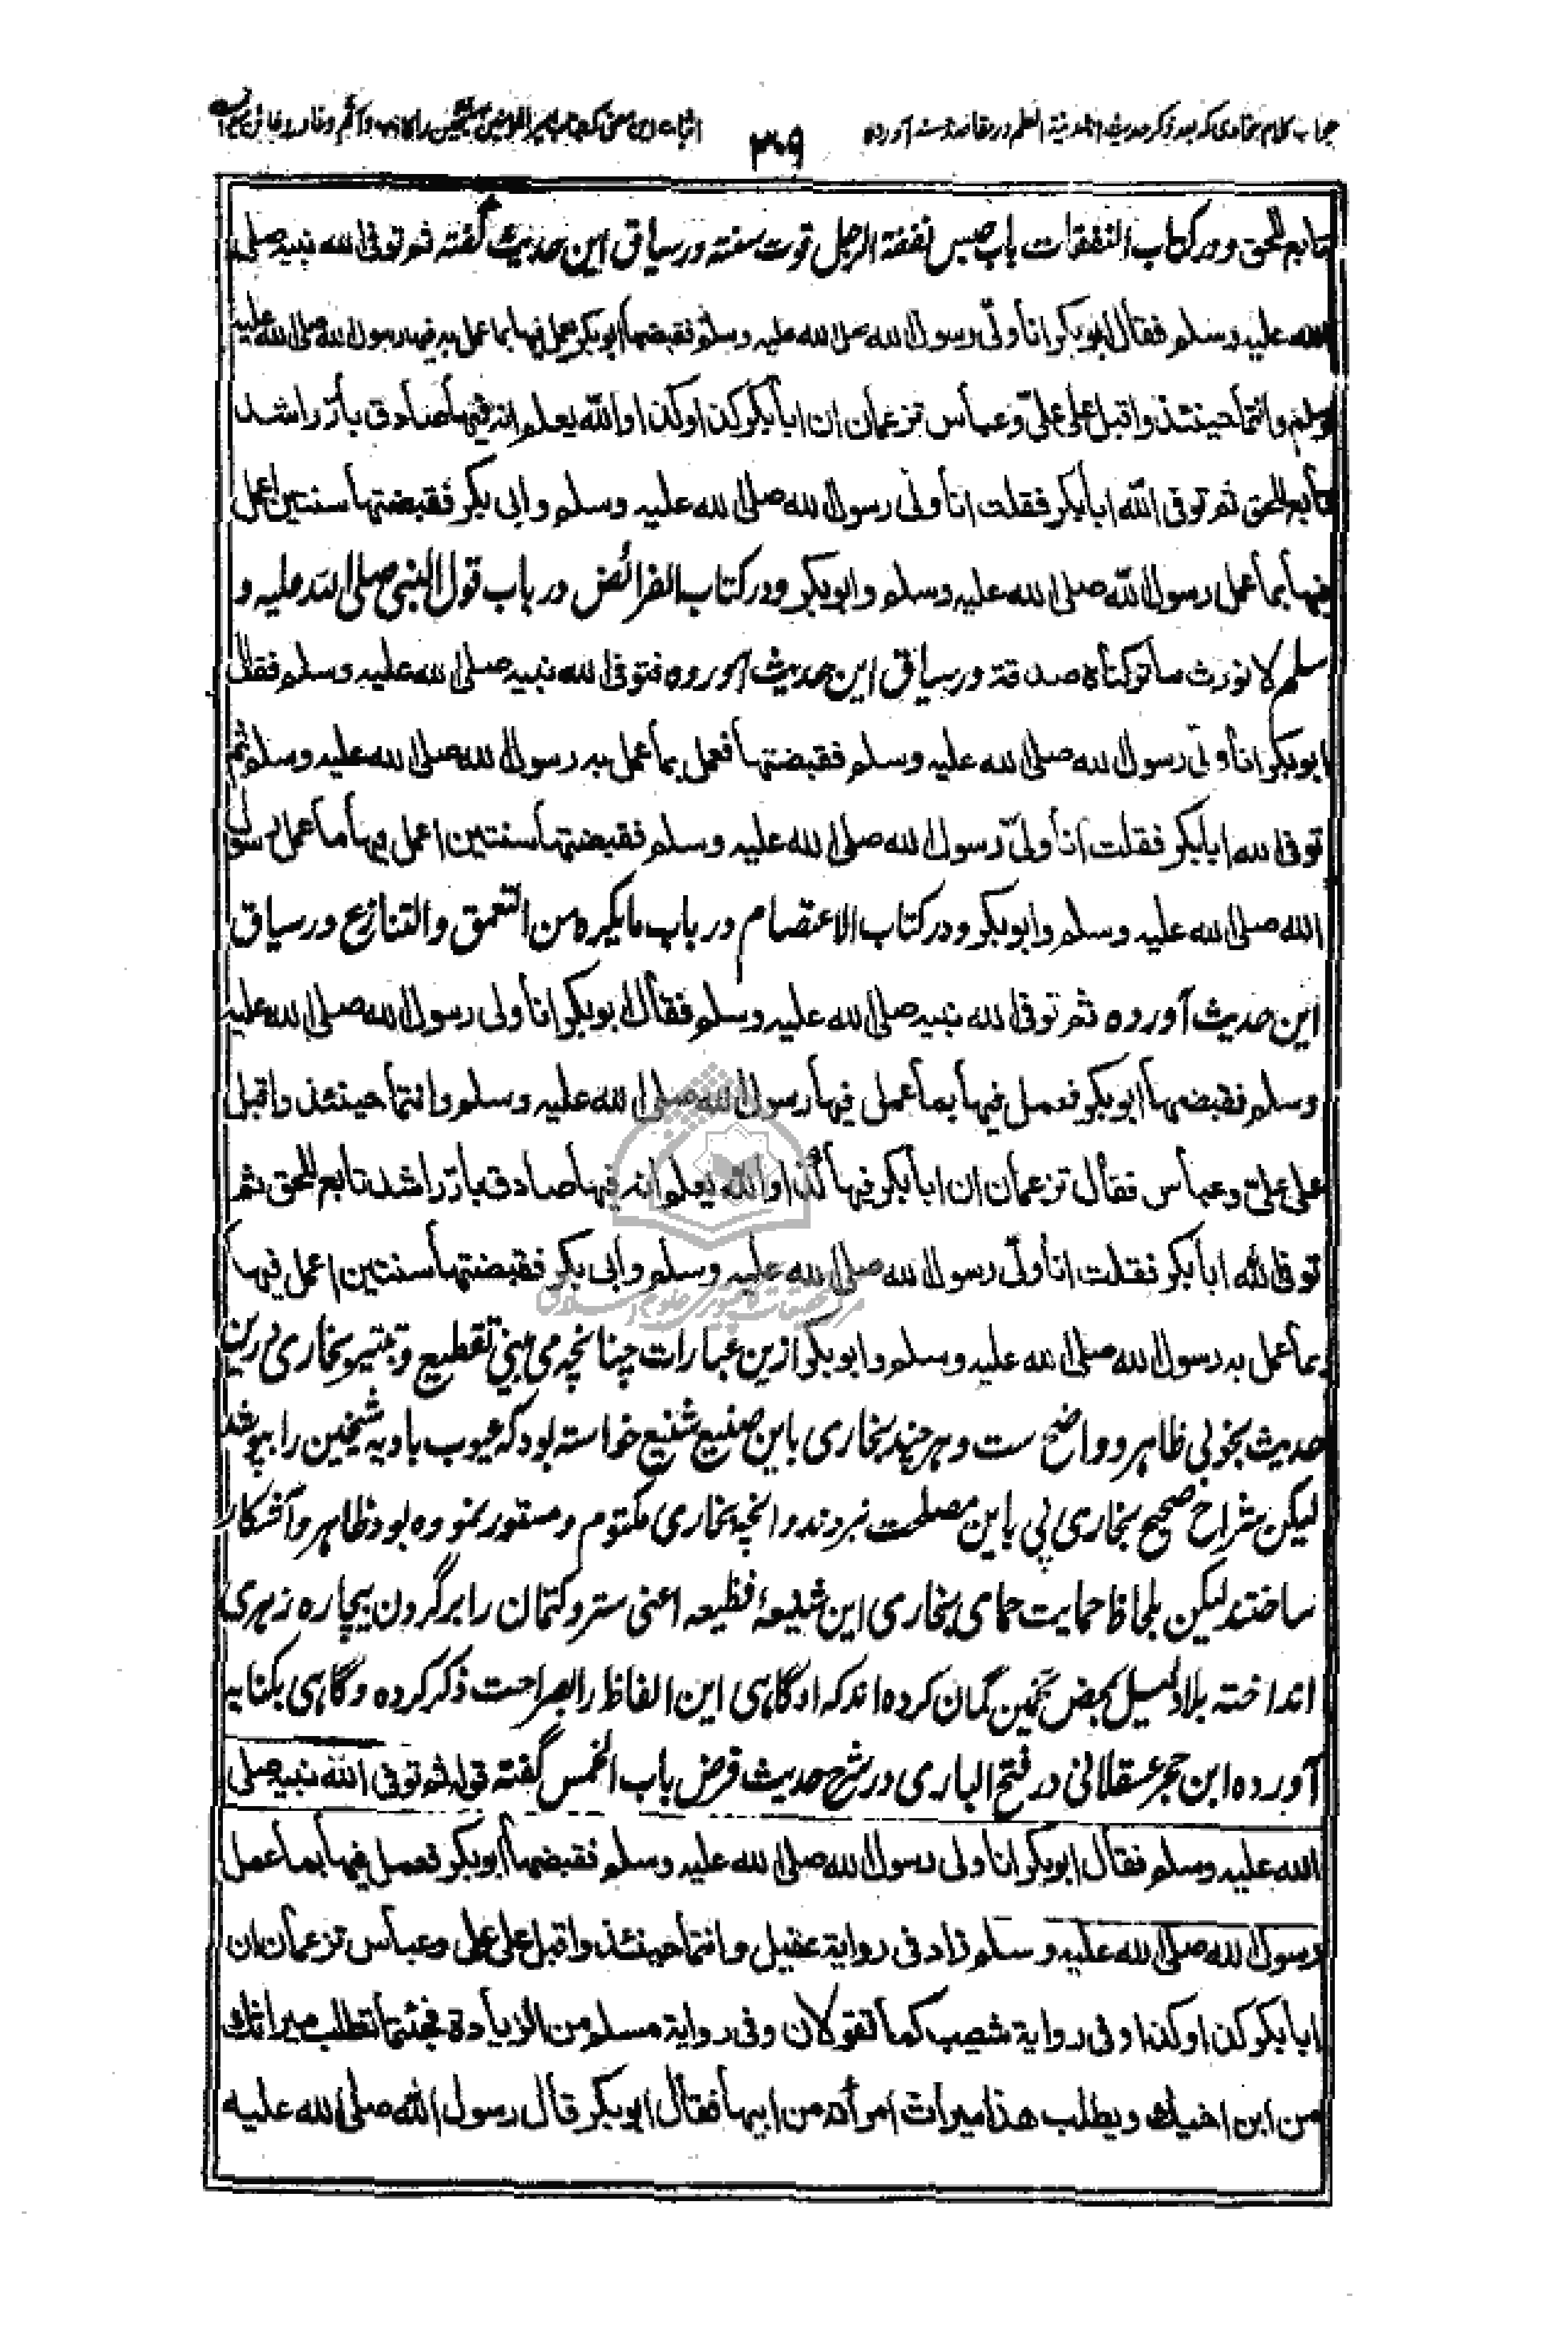 جواب کلام سخاوی که بعد ذکر حدیث انا مدینة العلم در مقاصد حسنه آورده
۳۰۹
اثبات این معنی که جناب امیر المومنین شیخین را کاذب و آثم و غادر و خائن
تابع للحق و در کتاب النفقات باب حبس نفقة الرجل قوت سنته در سیاق این حدیث گفته ثم توفی الله نبیه صلی
الله علیه وسلم فقال ابوبکر انا ولی رسول الله صلی الله علیه وسلم فقبضها ابوبکر یعمل فیها بما عمل به فیها رسول الله صلی الله علیه
وسلم وانتما حینئذ واقبل علی علی وعباس تزعمان ان ابابکر کذا وکذا والله یعلم انه فیها صادق بار راشد
تابع للحق ثم توفی الله ابابکر فقلت انا ولی رسول الله صلی الله علیه وسلم وابی بکر فقبضتها سنتین اعمل
فیها بما عمل رسول الله صلی الله علیه وسلم وابوبکر و در کتاب الفرائض در باب قول النبی صلی الله علیه و
سلم لا نورث ما ترکناه صدقة در سیاق این حدیث آورده فتوفی الله نبیه صلی الله علیه وسلم فقال
ابوبکر انا ولی رسول الله صلی الله علیه وسلم فقبضتها فعمل بما عمل به رسول الله صلی الله علیه وسلم ثم
توفی الله ابابکر فقلت انا ولی رسول الله صلی الله علیه وسلم فقبضتها سنتین اعمل فیها ما عمل رسول
الله صلی الله علیه وسلم وابوبکر و در کتاب الاعتصام در باب ما یکره من التعمق والتنازع در سیاق
این حدیث آورده ثم توفی الله نبیه صلی الله علیه وسلم فقال ابوبکر انا ولی رسول الله صلی الله علیه
وسلم فقبضها ابوبکر فعمل فیها بما عمل فیها رسول الله صلی الله علیه وسلم وانتما حینئذ واقبل
علی علی وعباس فقال تزعمان ان ابابکر فیها کذا والله یعلم انه فیها صادق بار راشد تابع للحق ثم
توفی الله ابابکر فقلت انا ولی رسول الله صلی الله علیه وسلم وابی بکر فقبضتها سنتین اعمل فیها
بما عمل به رسول الله صلی الله علیه وسلم وابوبکر ازین عبارات چنانچه می بینی تقطیع و تبتیر بخاری درین
حدیث بخوبی ظاهر و واضح ست و هر چند بخاری باین صنیع شنیع خواسته بود که عیوب بادیه شیخین را بپوشد
لیکن شراح صحیح بخاری پی باین مصلحت نبردند و انچه بخاری مکتوم و مستور نموده بود ظاهر و آشکار
ساختند لیکن بلحاظ حمایت حمای بخاری این شنیعهٔ فظیعه اعنی ستر و کتمان را بر گردن بیچاره زهری
انداخته بلا دلیل بمحض تخمین گمان کرده اند که او گاهی این الفاظ را بصراحت ذکر کرده و گاهی بکنایه
آورده ابن حجر عسقلانی در فتح الباری در شرح حدیث فرض باب الخمس گفته قوله ثم توفی الله نبیه صلی
الله علیه وسلم فقال ابوبکر انا ولی رسول الله صلی الله علیه وسلم فقبضها ابوبکر فعمل فیها بما عمل
رسول الله صلی الله علیه وسلم زاد فی روایة عقیل وانتما حینئذ واقبل علی علی وعباس تزعمان ان
ابابکر کذا وکذا وفی روایة شعیب کما تقولان وفی روایة مسلم من الزیادة فجئتما تطلب میراثک
من ابن اخیک ویطلب هذا میراث امرأته من ابیها فقال ابوبکر قال رسول الله صلی الله علیه
مرکز تحقیقات کامپیوتری علوم اسلامی